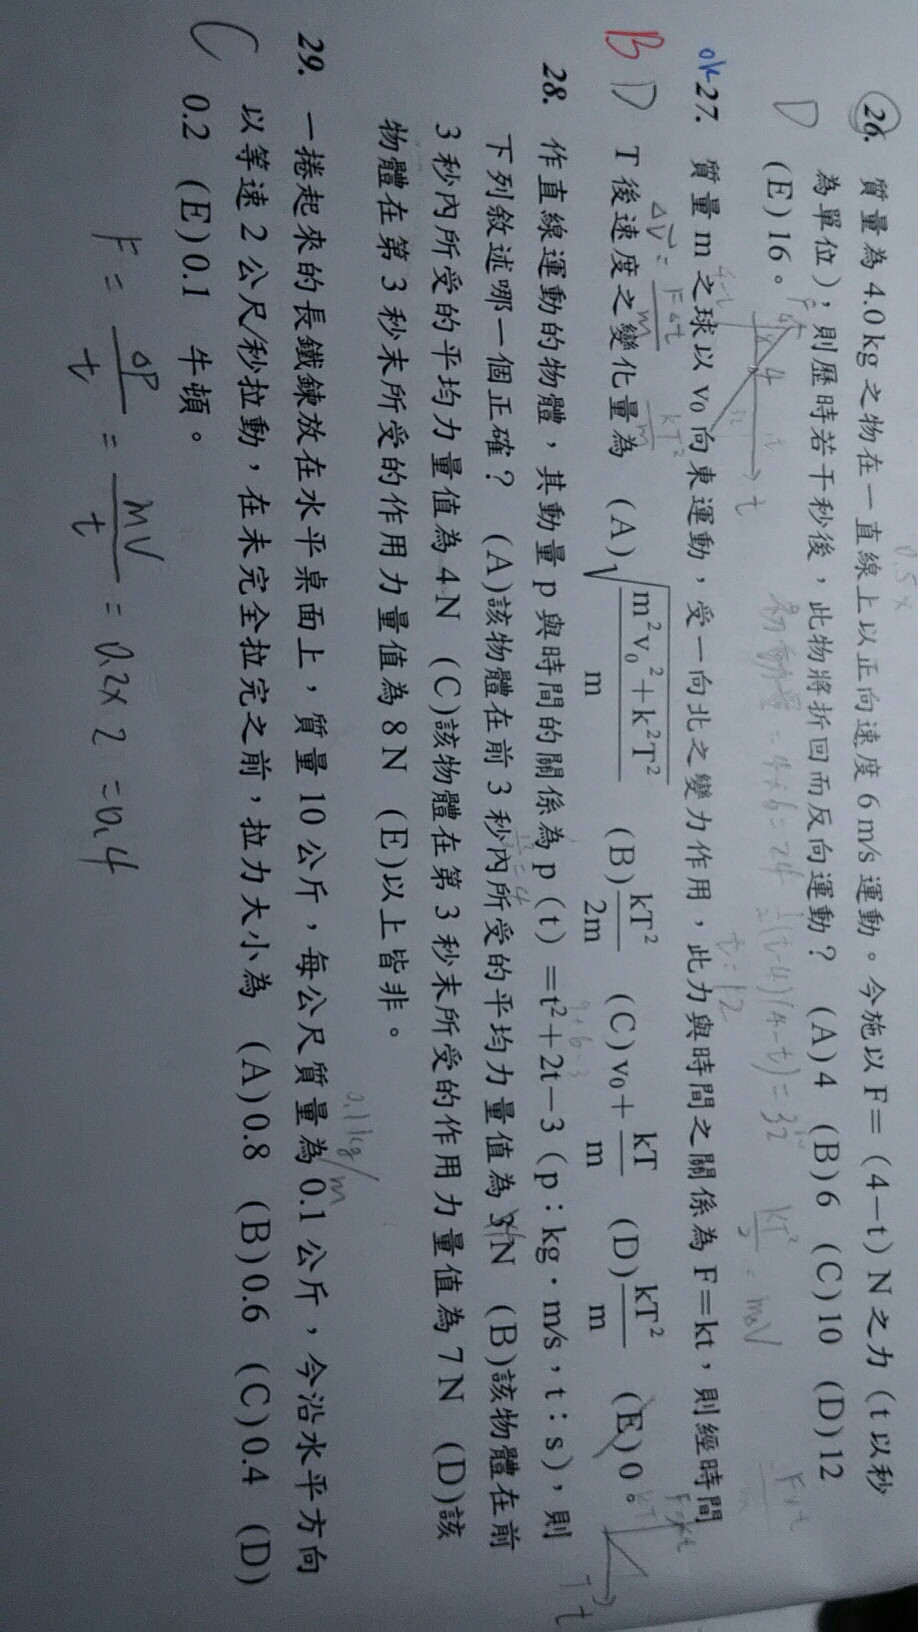 26. 質量為 4.0 kg 之物在一直線上以正向速度 6 m/s 運動。今施以 F=(4－t) N 之力(t 以秒
D 為單位),則歷時若干秒後,此物將折回而反向運動? (A) 4 (B) 6 (C) 10 (D) 12
(E) 16。
初動量 = 4×6 = 24
t = 12
ok 27. 質量 m 之球以 v₀ 向東運動,受一向北之變力作用,此力與時間之關係為 F=kt,則經時間
B D T 後速度之變化量為 (A) √(m²v₀²+k²T²)/m (B) kT²/2m (C) v₀+kT/m (D) kT²/m (E) 0。
28. 作直線運動的物體,其動量 p 與時間的關係為 p(t)=t²+2t－3(p:kg·m/s,t:s),則
下列敘述哪一個正確? (A)該物體在前 3 秒內所受的平均力量值為 3 N (B)該物體在前
3 秒內所受的平均力量值為 4 N (C)該物體在第 3 秒末所受的作用力量值為 7 N (D)該
物體在第 3 秒末所受的作用力量值為 8 N (E)以上皆非。
0.1 kg/m
29. 一捲起來的長鐵鍊放在水平桌面上,質量 10 公斤,每公尺質量為 0.1 公斤,今沿水平方向
以等速 2 公尺/秒拉動,在未完全拉完之前,拉力大小為 (A) 0.8 (B) 0.6 (C) 0.4 (D)
C 0.2 (E) 0.1 牛頓。
F = ΔP/t = mV/t = 0.2×2 = 0.4